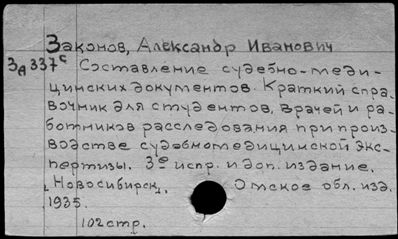 Законов, Александр Иванович
3А337с Составление судебно-меди-
цинских документов. Краткий спра-
вочник для студентов, врачей и ра-
ботников расследования при произ-
водстве судебномедицинской экс-
пертизы. 3е испр. и доп. издание.
Новосибирск, Омское обл. изд.
1935.
102 стр.